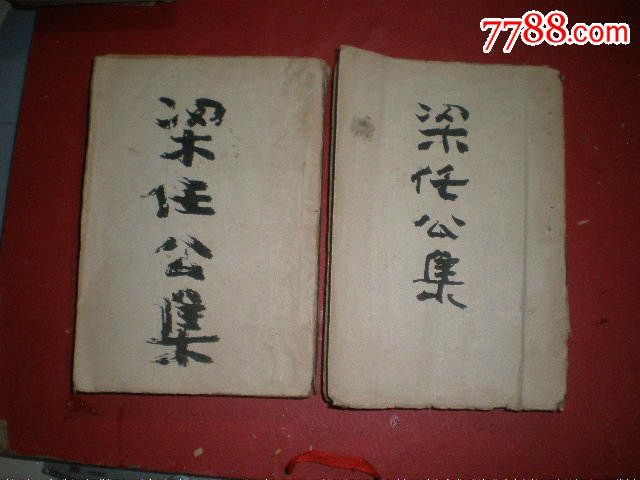 7788.com
梁任公集
梁任公集